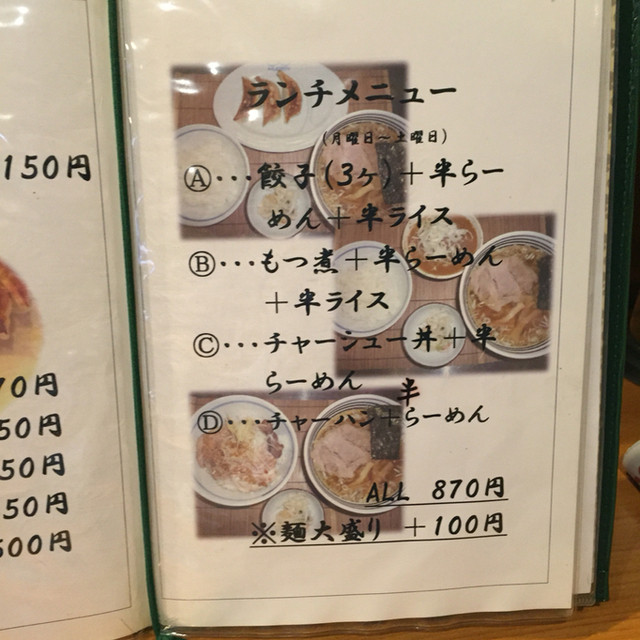 150円
70円
50円
50円
50円
500円
ランチメニュー
(月曜日～土曜日)
Ⓐ・・・餃子(3ヶ)＋半らー
めん＋半ライス
Ⓑ・・・もつ煮＋半らーめん
＋半ライス
Ⓒ・・・チャーシュー丼＋半
らーめん
半
Ⓓ・・・チャーハン＋らーめん
ALL 870円
※麺大盛り ＋100円